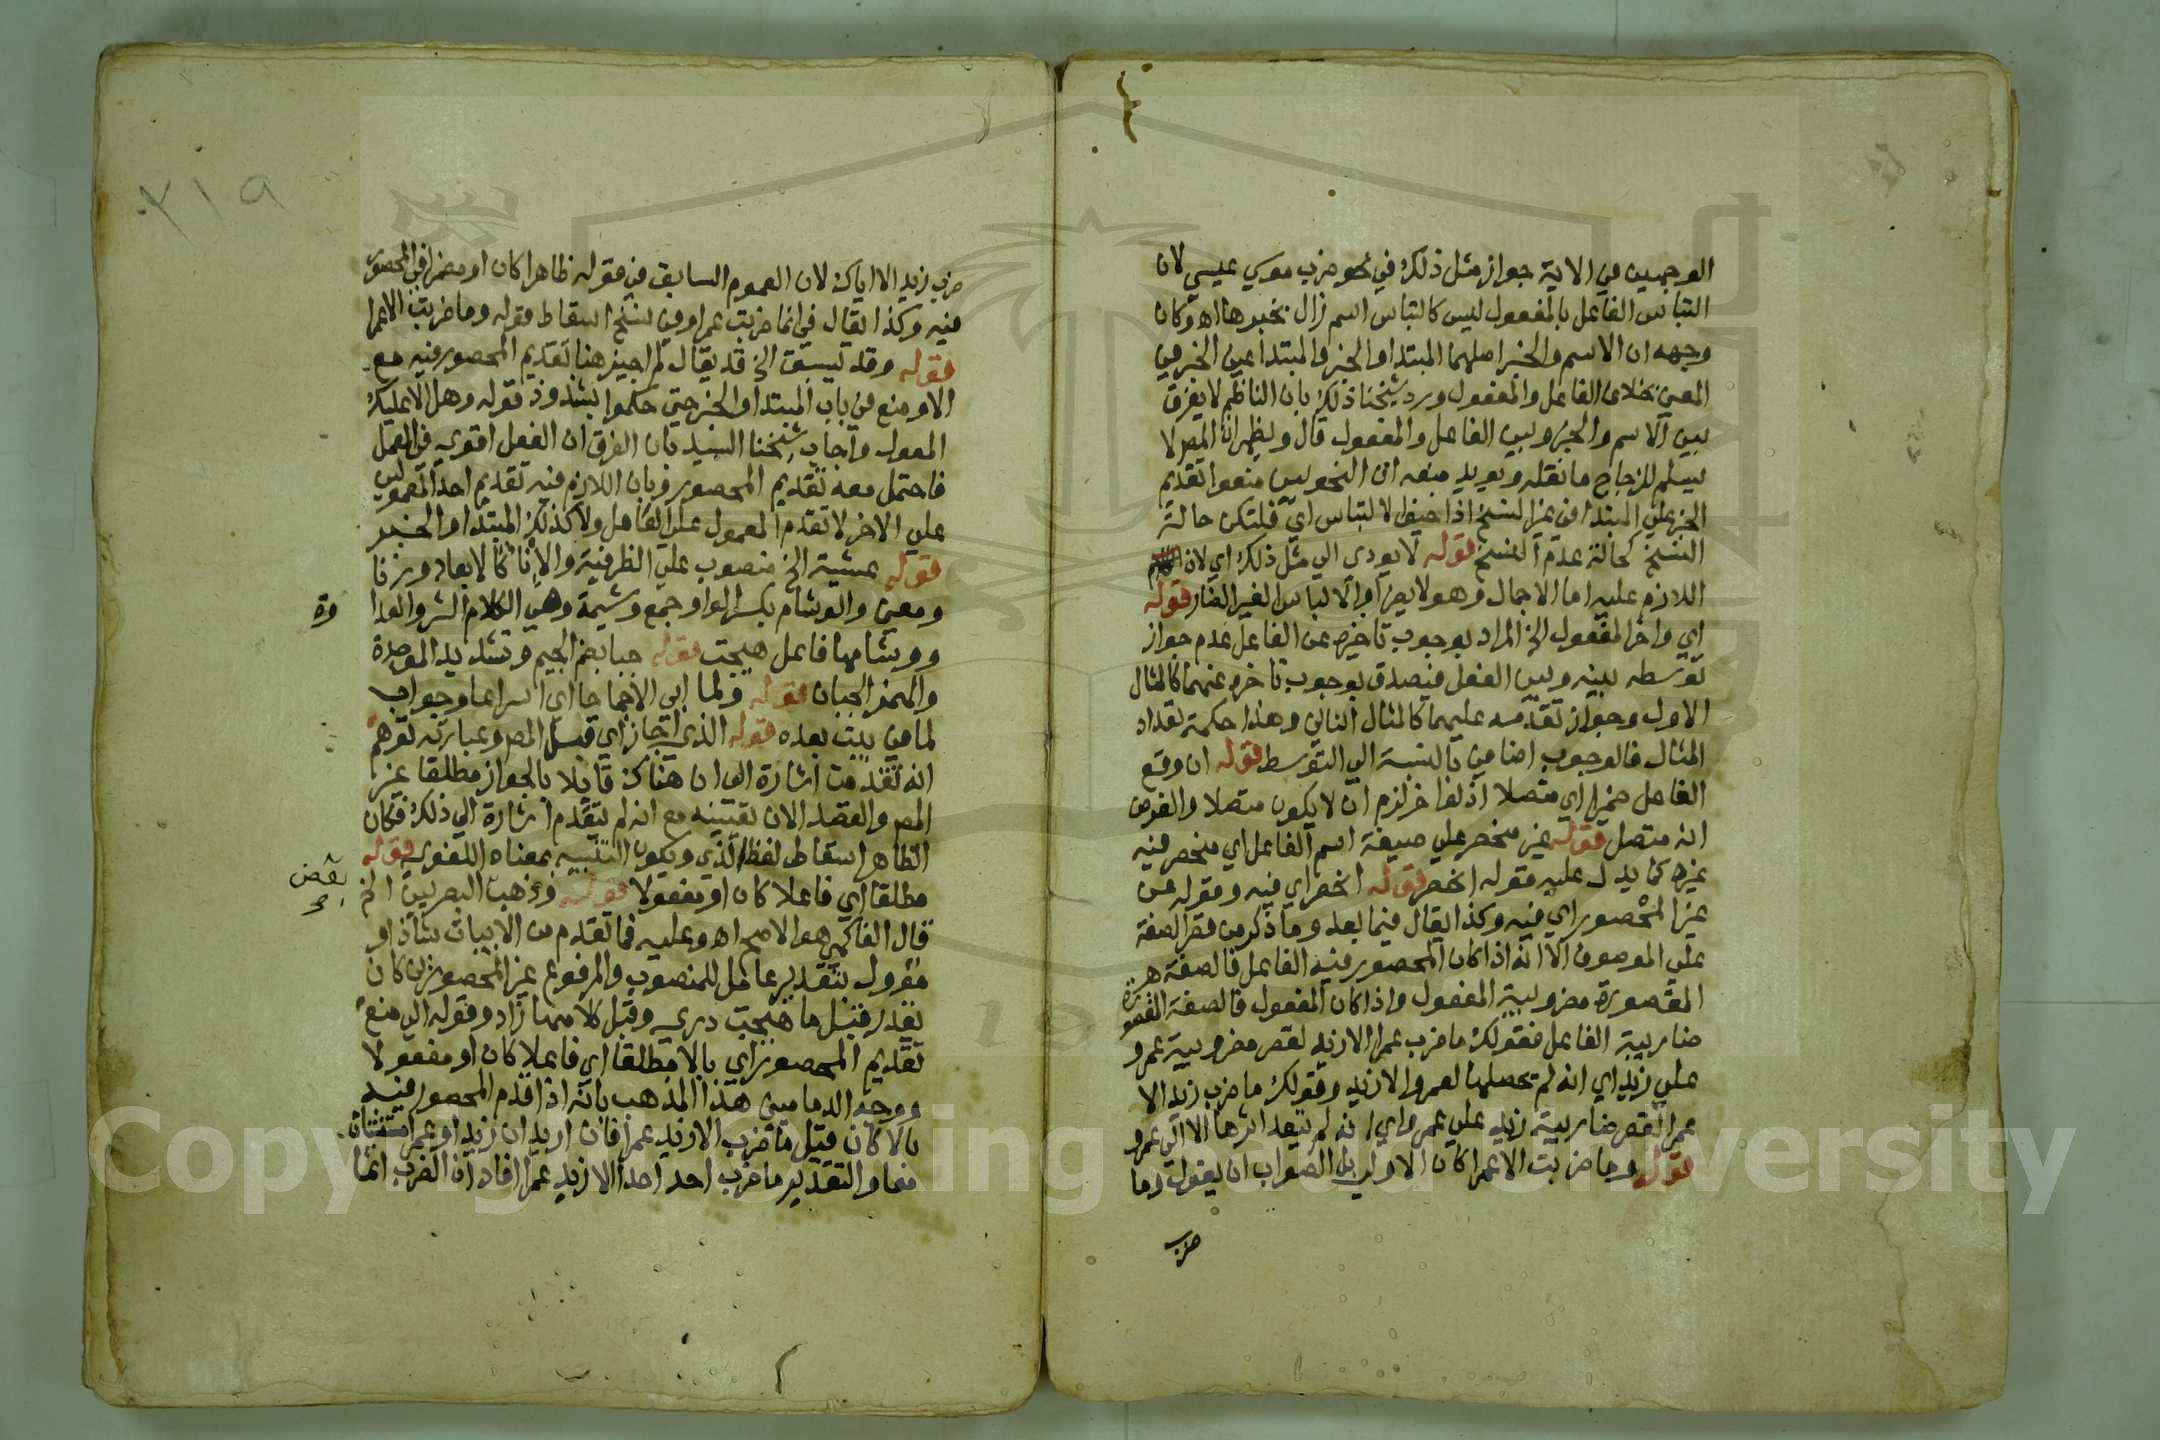 الوجهين في الاية جواز مثل ذلك في نحو ضرب موسي عيسي لان
التباس الفاعل بالمفعول ليس كالتباس اسم زال بخبرها اه وكان
وجهه ان الاسم والخبر اصلهما المبتدا والخبر والمبتدا عين الخبر في
المعني بخلاف الفاعل والمفعول ورد شيخنا ذلك بان الناظم لا يفرق
بين الاسم والخبر وبين الفاعل والمفعول قال ويظهر ان المص لا
يسلم للزجاج ما نقله ويويد منعه ان النحويين منعوا تقديم
الخبر علي المبتدا في غير النسخ اذا خيف الالتباس اي فلتكن حالة
النسخ كحالة عدم النسخ قوله لا يودي الي مثل ذلك اي لان
اللازم عليه اما الاجمال وهو لا يضر او الالباس الغير الضار قوله
اي واخر المفعول الخ المراد بوجوب تاخيره عن الفاعل عدم جواز
توسطه بينه وبين الفعل فيصدق بوجوب تاخره عنهما كالمثال
الاول وجواز تقدمه عليهما كالمثال الثاني وهذا حكمة تعداد
المثال فالوجوب اضافي بالنسبة الي التوسط قوله ان وقع
الفاعل ضميرا اي متصلا اذ لو اخر لزم ان لا يكون متصلا والفرض
انه متصل قوله غير منحصر علي صيغة اسم الفاعل اي منحصر فيه
غيره كما يدل عليه قوله انحصر قوله انحصر اي فيه وقوله عن
غير المحصور اي فيه وكذا يقال فيما بعد وما ذكر من قصر الصفة
علي الموصوف الا انه اذا كان المحصور فيه الفاعل فالصفة
المقصورة مضروبية المفعول واذا كان المفعول فالصفة المقصورة
ضاربية الفاعل فقولك ما ضرب عمرا الا زيد لقصر مضروبية عمرو
علي زيد اي انه لم تحصلها لعمرو الا زيد وقولك ما ضرب زيد الا
عمرا لقصر ضاربية زيد علي عمرو اي انه لم يتعد اثرها الا الي عمرو
قوله وما ضربت الا عمرا كان الاولي بل الصواب ان يقول وما
ضرب
٢١٩
ضرب زيد الا اياك لان العموم السابق في قوله ظاهرا كان او مضمرا في المحصور
فيه وكذا يقال في انما ضربت عمرا وفي نسخ اسقاط قوله وما ضربت الا عمرا
قوله وقد يسبق الخ قد يقال لم اجيز هنا تقديم المحصور فيه مع
الا ومنع في باب المبتدا والخبر حتي حكموا بشذوذ قوله وهل الا عليك
المعول واجاب شيخنا السيد بان الفرق ان الفعل اقوي في العمل
فاحتمل معه تقديم المحصور وبان اللازم فيه تقديم احد المعمولين
علي الاخر لا تقدم المعمول علي العامل ولا كذلك المبتدا والخبر
قوله عشية الخ منصوب علي الظرفية والانآ كالابعاد وزنا
ومعني والوشام بكسر الواو جمع وشيمة وهي الكلام الشر والعداوة
ووشامها فاعل هيجت قوله جبا بضم الجيم وتشديد الموحدة
والهمز الجبان قوله ولما ابي الا جماحا اي اسراعا وجواب
لما في بيت بعده قوله الذي اجاز اي قبل المص وعبارته توهم
انه تقدمت اشارة الي ان هناك قايلا بالجواز مطلقا غير
المص والقصد الان تعيينه مع انه لم يتقدم اشارة الي ذلك فكان
الظاهر اسقاط لفظ الذي ويكون التنبيه بمعناه اللغوي قوله
مطلقا اي فاعلا كان او مفعولا قوله وذهب البصريين الخ
بعض
قال الفاكهي هو الاصح اه وعليه فما تقدم من الابيات شاذ او
مؤول بتقدير عامل للمنصوب والمرفوع غير المحصورين كان
يقدر قبل ما هيجت دري وقبل كلامها زاد وقوله الي منع
تقديم المحصور اي بالا مطلقا اي فاعلا كان او مفعولا
ووجه الدماميني هذا المذهب بانه اذا قدم المحصور فيه
بالا كان قيل ما ضرب الا زيد عمرا فان اريد ان زيد او عمرا مستثنيان
معا والتقدير ما ضرب احد احدا الا زيد عمرا افاد ان الضرب انما